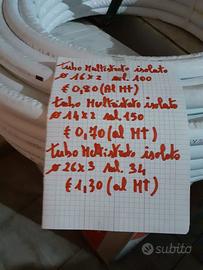 tubo Multistrato isolato
ø 16x2 sol. 100
€ 0,80 (al Mt)
tubo Multistrato isolato
ø 14x2 sol. 150
€ 0,70 (al Mt)
tubo Multistrato isolato
ø 26x3 sol. 34
€ 1,30 (al Mt)
subito